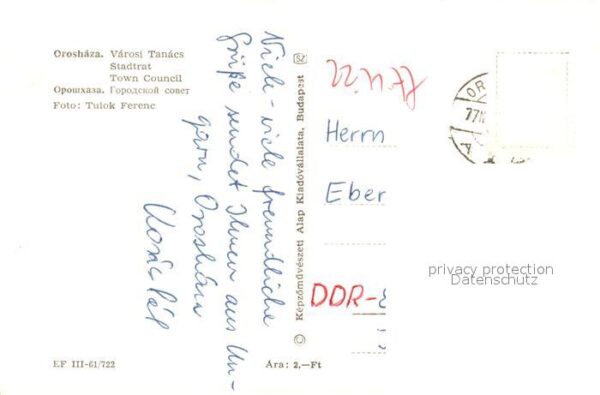 Orosháza. Városi Tanács
Stadtrat
Town Council
Орошхаза. Городской совет
Foto: Tulok Ferenc
Viele - viele freundliche
Grüße sendet Ihnen aus Un-
garn, Orosháza
Pál
EF III-61/722
Ára: 2,—Ft
Képzőművészeti Alap Kiadóvállalata, Budapest
SZ
Herrn
Eber
DDR-
OR
77
privacy protection
Datenschutz